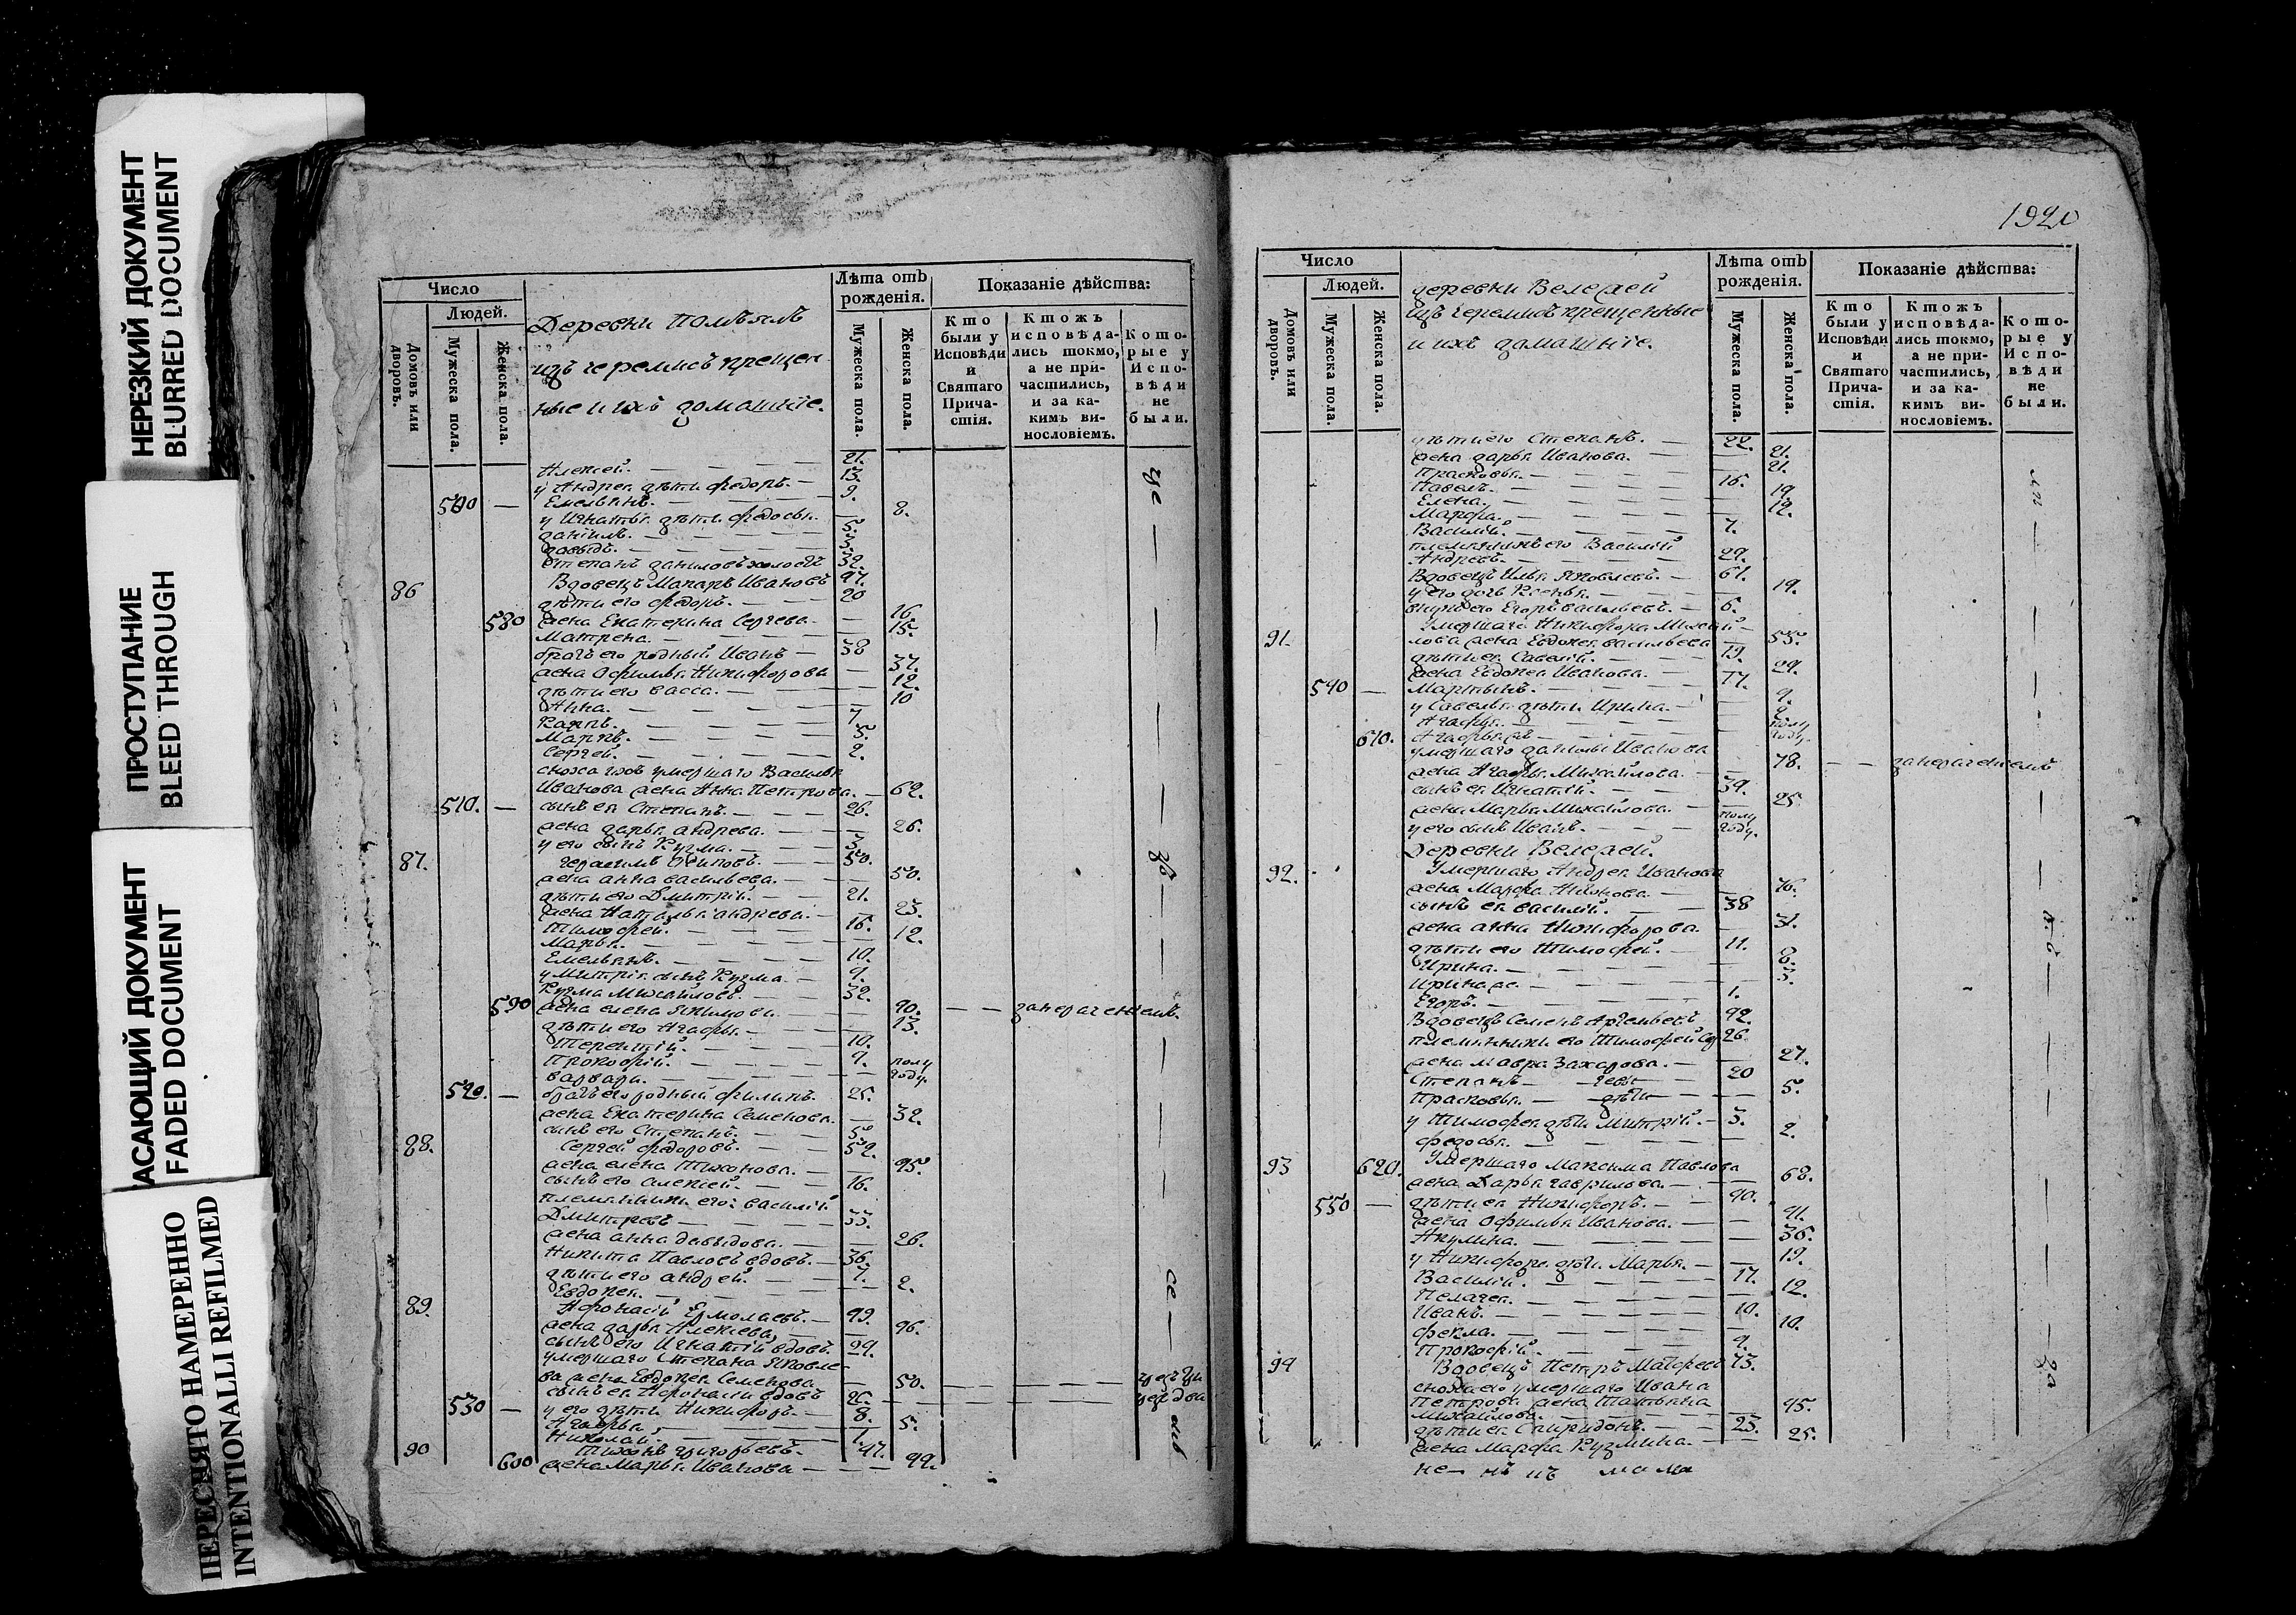 НЕРЕЗКИЙ ДОКУМЕНТ
BLURRED DOCUMENT
ПРОСТУПАНИЕ
BLEED THROUGH
АСАЮЩИЙ ДОКУМЕНТ
FADED DOCUMENT
ПЕРЕСНЯТО НАМЕРЕННО
INTENTIONALLI REFILMED
Число
Людей.
Домовъ или дворовъ.
Мужеска пола.
Женска пола.
Деревни
изъ черемисъ крещен
ные и ихъ домашніе.
Лѣта отъ рожденія.
Мужеска пола.
Женска пола.
Показаніе дѣйства:
Кто были у Исповѣди и Святаго Причастія.
Ктожъ исповѣдались токмо, а не причастились, и за какимъ винословіемъ.
Которые у Исповѣди не были.
Алексей. — 21.
у Андрея дѣти Федоръ. — 13.
500 — Емельянъ. — 9.
у Игнатья дѣти Федосья. — 8.
Даниилъ. — 5.
Давыдъ. — 3.
Степанъ Даниловъ холостъ 32.
86 Вдовецъ Макаръ Ивановъ 47.
дѣти его Федоръ. — 20
580 жена Екатерина Сергеева — 16.
Матрена. — 15.
братъ его родный Иванъ — 38
жена Офимья Никифорова — 37.
дѣти его Васса. — 12.
Анна. — 10
Карпъ. — 7.
Маркъ. — 5.
Сергей. — 2.
сноха умершаго Василья
Иванова жена Анна Петрова. — 62.
510. — сынъ ея Степанъ. — 26.
жена Дарья Андреева. — 26.
у его сынъ Кузма. — 3
87. Герасимъ Осиповъ. — 50.
жена Анна Васильева. — 50.
дѣти его Дмитрій. — 21.
жена Наталья Андреева. — 23.
Тимофей. — 16.
Марья. — 12.
Емельянъ. — 10.
у Митрія сынъ Кузма — 9.
Кузма Михайловъ. — 32.
590 жена Елена Якимова. — 40. — — за нерачениемъ.
дѣти его Агафья. — 13.
Терентій. — 10.
Прокофій. — 9.
Варвара. — полу году.
520. — братъ его родный Филипъ. 25.
жена Екатерина Семенова. — 32.
сынъ его Степанъ. — 5
88. Сергей Федоровъ. — 52.
жена Елена Тихонова. — 45.
сынъ его Алексей. — 16.
племянники его: Василій
Дмитревъ — 33.
жена Анна Давыдова. — 26.
Никита Павловъ вдовъ. — 36.
дѣти его Андрей. — 7.
Евдокея. — 2.
89. Афонасій Ермолаевъ. — 49.
жена Дарья Алексеева, — 46.
сынъ его Игнатій вдовъ. 29.
умершаго Степана Яковле-
ва жена Евдокея Семенова — 50.
сынъ ея Афонасій вдовъ 26.
530 — у его дѣти Никифоръ. — 8.
Агафья — 5.
Николай. — 1.
90 Тихонъ Григорьевъ. — 47.
600 жена Марья Иванова — 44.
1920
Число
Людей.
Домовъ или дворовъ.
Мужеска пола.
Женска пола.
деревни
изъ черемисъ крещенные
и ихъ домашніе.
Лѣта отъ рожденія.
Мужеска пола.
Женска пола.
Показаніе дѣйства:
Кто были у Исповѣди и Святаго Причастія.
Ктожъ исповѣдались токмо, а не причастились, и за какимъ винословіемъ.
Которые у Исповѣди не были.
дѣти его Степанъ. — 22.
жена Дарья Иванова. — 21.
Прасковья. — 21.
Павелъ. — 16.
Елена. — 19
Марфа. — 12.
Василій. — 7.
племянникъ его Василій
Андреевъ. — 29.
Вдовецъ Илья Яковлевъ. — 61.
у его дочь Ксенья. — 19.
внукъ его Егоръ Васильевъ. — 6.
91. Умершаго Никифора Михай-
лова жена Евдокея Васильева — 55.
дѣти ея Савелій. — 19.
жена Евдокея Иванова. — 29.
540 — Мартынъ. — 17.
у Савелья дѣти Ирина. — 9.
Агафья. — 2.
610. полу году.
умершаго Данилы Иванова
жена Агафья Михайлова. — 78. — — за нерачениемъ
сынъ ея Игнатій. — 39.
жена Марья Михайлова. — 25
у его сынъ Иванъ. — полу году.
Деревни
92. Умершаго Андрея Иванова
жена Марфа — 76.
сынъ ея Василій. — 38
жена Анна Никифорова. — 31.
дѣти его Тимофей. — 11.
Ирина. — 8.
3.
Егоръ. — 1.
Вдовецъ Семенъ 42.
племянники его Тимофей 26.
жена Мавра Захарова. — 27.
Степанъ — 20
Прасковья. — 5.
у Тимофея дѣти Митрій. — 3.
Федосья. — 2.
93 620. Умершаго Максима Павлова
жена Дарья Гаврилова. — 68.
550 — дѣти ея Никифоръ. — 40.
жена Офимья Иванова. — 41.
Акулина. — 36.
у Никифора дѣти Марья. — 19.
Василій. — 17.
Пелагея. — 12.
Иванъ. — 10.
Фекла. — 10.
Прокофій. — 9.
94 Вдовецъ Петръ 73.
сноха его умершаго Ивана
Петрова жена Татьяна
Михайлова. — 45.
дѣти ея Спиридонъ. — 23.
жена Марфа Кузмина. — 25.